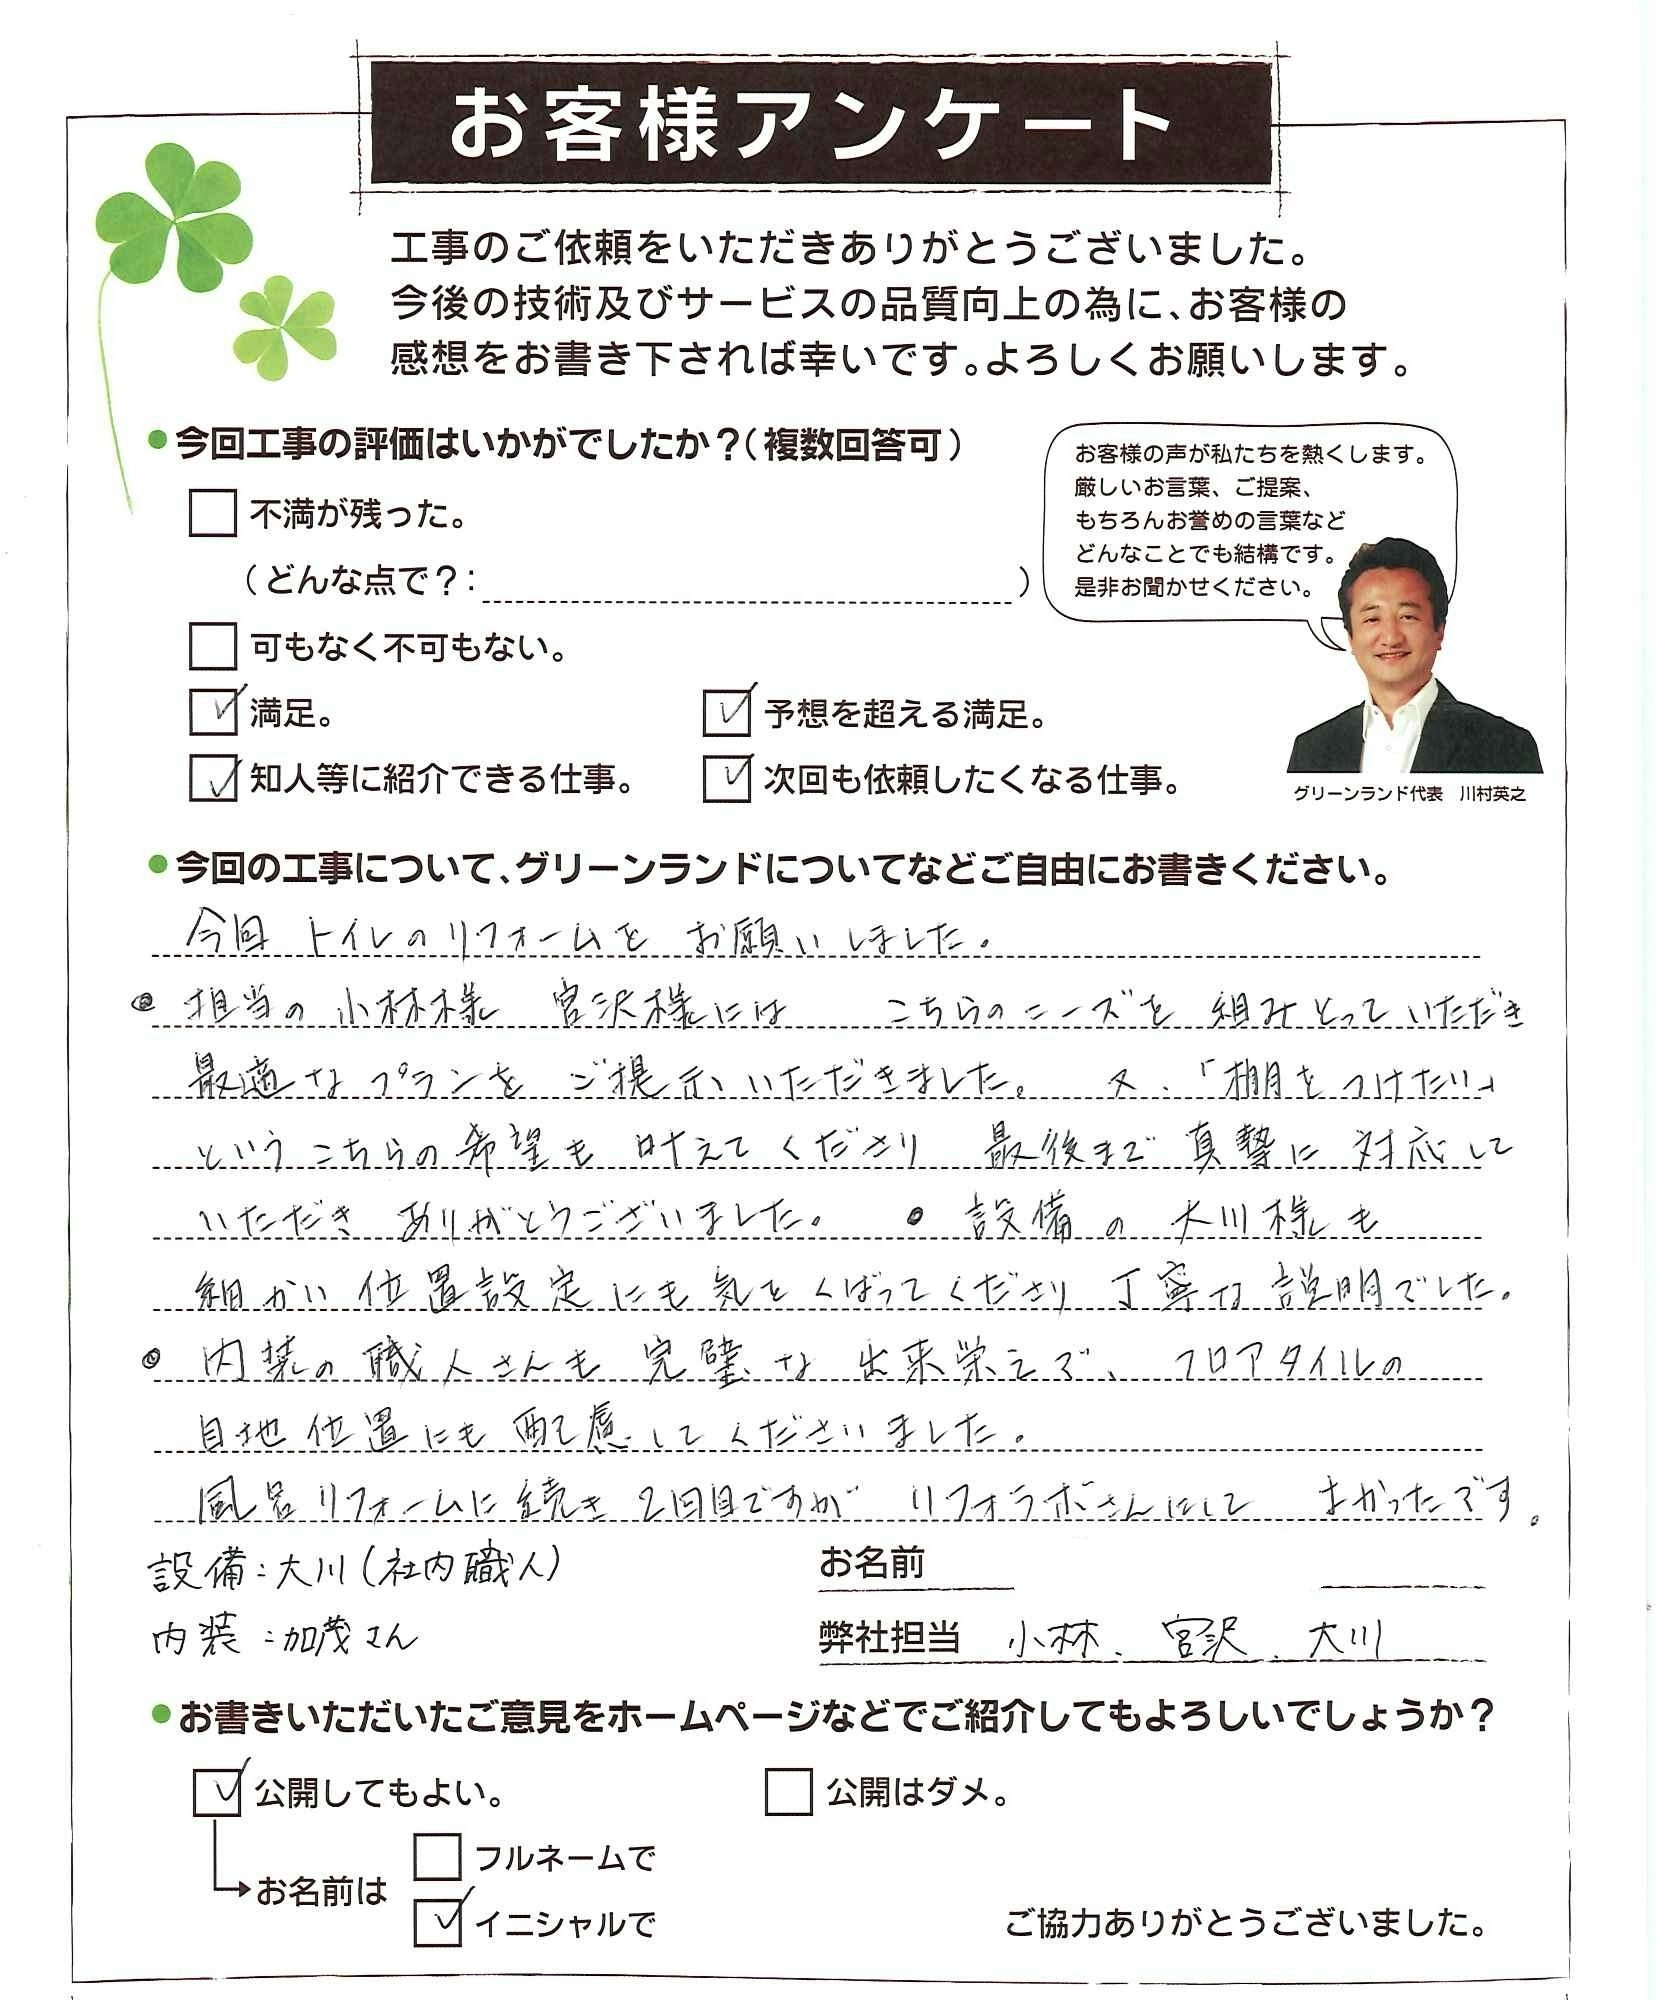 お客様アンケート
工事のご依頼をいただきありがとうございました。
今後の技術及びサービスの品質向上の為に、お客様の
感想をお書き下されば幸いです。よろしくお願いします。
●今回工事の評価はいかがでしたか？（複数回答可）
不満が残った。
（どんな点で？：　）
可もなく不可もない。
満足。
予想を超える満足。
知人等に紹介できる仕事。
次回も依頼したくなる仕事。
お客様の声が私たちを熱くします。
厳しいお言葉、ご提案、
もちろんお誉めの言葉など
どんなことでも結構です。
是非お聞かせください。
グリーンランド代表　川村英之
●今回の工事について、グリーンランドについてなどご自由にお書きください。
今回 トイレのリフォームを お願いしました。
● 担当の 小林様 宮沢様には こちらのニーズを 組みとっていただき
最適なプランを ご提示いただきました。 又、「棚をつけたい」
というこちらの希望も 叶えてくださり 最後まで真摯に対応して
いただき ありがとうございました。 ● 設備の 大川様も
細かい位置設定にも気をくばってくださり 丁寧な説明でした。
● 内装の職人さんも 完璧な出来栄えで、フロアタイルの
目地位置にも配慮してくださいました。
風呂リフォームに続き 2回目ですが リフォラボさんにして よかったです。
設備：大川（社内職人）
内装：加茂さん
お名前
弊社担当 小林、宮沢、大川
●お書きいただいたご意見をホームページなどでご紹介してもよろしいでしょうか？
公開してもよい。
公開はダメ。
お名前は
フルネームで
イニシャルで
ご協力ありがとうございました。